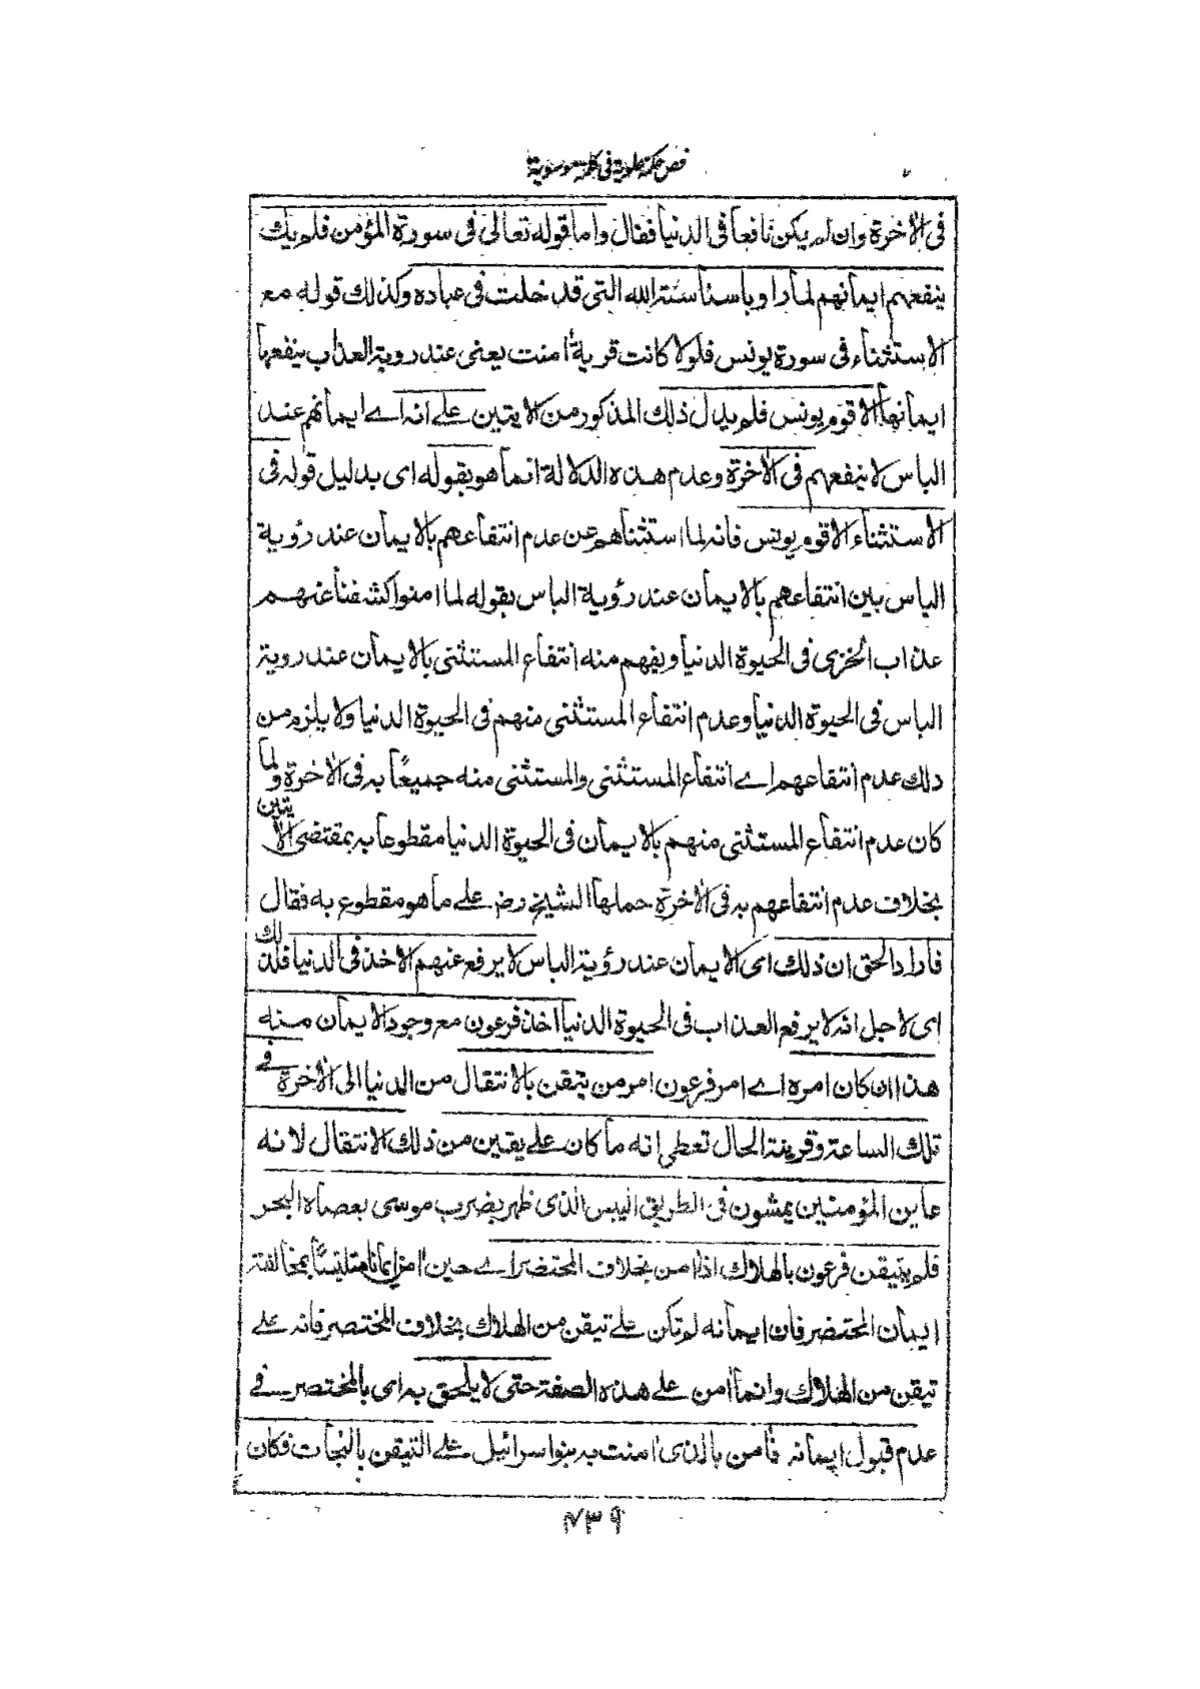 فص حكمة علوية فى كلمة موسوية
فى الاخرة وان لم يكن نافعاً فى الدنيا فقال واما قوله تعالى فى سورة المؤمن فلم يك
ينفعهم ايمانهم لما راوا باسنا سنة الله التى قد خلت فى عباده وكذلك قوله مع
الاستثناء فى سورة يونس فلولا كانت قرية اٰمنت يعنى عند روية العذاب ينفعها
ايمانها الا قوم يونس فلم يدل ذلك المذكور من الايتين علے انه اے ايمانهم عند
الباس لا ينفعهم فى الاٰخرة وعدم هذه الدلالة انما هو بقوله اى بدليل قوله فى
الاستثناء الا قوم يونس فانه لما استثناهم عن عدم انتفاعهم بالايمان عند رؤية
الباس بين انتفاعهم بالايمان عند رؤية الباس بقوله لما اٰمنوا كشفنا عنهم
عذاب الخزى فى الحيوة الدنيا ويفهم منه انتفاع المستثنى بالايمان عند روية
الباس فى الحيوة الدنيا وعدم انتفاع المستثنى منهم فى الحيوة الدنيا ولا يلزم من
ذلك عدم انتفاعهم اے انتفاع المستثنى والمستثنى منه جميعًا به فى الاٰخرة ولما
كان عدم انتفاع المستثنى منهم بالايمان فى الحيوة الدنيا مقطوعا به بمقتضى الاٰيتين
بخلاف عدم انتفاعهم به فى الاٰخرة حملها الشيخ رض علے ما هو مقطوع به فقال
فاراد الحق ان ذلك اى الايمان عند رؤية الباس لا يرفع عنهم الاخذ فى الدنيا فلذلك
اى لاجل انه لا يرفع العذاب فى الحيوة الدنيا اخذ فرعون مع وجود الايمان منه
هذا ان كان امره اے امر فرعون امر من تيقن بالانتقال من الدنيا الى الاٰخرة فے
تلك الساعة وقرينة الحال تعطى انه ما كان علے يقين من ذلك الانتقال لانه
عاين المؤمنين يمشون فى الطريق اليبس الذى ظهر بضرب موسى بعصاه البحر
فلم يتيقن فرعون بالهلاك اذا اٰمن بخلاف المحتضر اے حين اٰمن ايمانا متلبسًا بمخالفة
ايمان المحتضر فان ايمانه لم تكن علے تيقن من الهلاك بخلاف المختصر فانه علے
تيقن من الهلاك وانما اٰمن علے هذه الصفة حتى لا يلحق به اى بالمختصر فے
عدم قبول ايمانه فاٰمن بالذى اٰمنت به بنوا سرائيل علے التيقن بالنجات فكان
٧٣٩